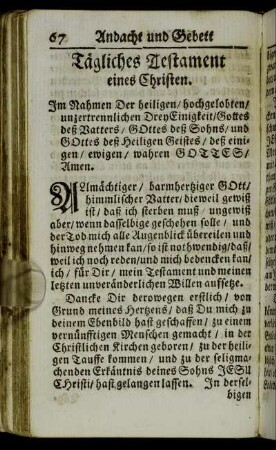 67 Andacht und Gebett
Tägliches Testament
eines Christen.
Im Nahmen Der heiligen/ hochgelobten/
unzertrennlichen DreyEinigkeit/Gottes
deß Vatters/ GOttes deß Sohns/ und
GOttes deß Heiligen Geistes/ deß eini-
gen/ ewigen/ wahren GOTTES/
Amen.
ALmächtiger/ barmhertziger GOtt/
himmlischer Vatter/ dieweil gewiß
ist/ daß ich sterben muß/ ungewiß
aber/ wenn dasselbige geschehen solle / und
der Tod mich alle Augenblick übereilen und
hinweg nehmen kan/ so ist nothwendig/ daß/
weil ich noch reden/und mich bedencken kan/
ich/ für Dir/ mein Testament und meinen
letzten unveränderlichen Willen aufsetze.
Dancke Dir derowegen erstlich/ von
Grund meines Hertzens/ daß Du mich zu
deinem Ebenbild hast geschaffen/ zu einem
vernünfftigen Menschen gemacht/ in der
Christlichen Kirchen geboren/ zu der heili-
gen Tauffe kommen/ und zu der seligma-
chenden Erkäntnis deines Sohns JESU
CHristi/ hast gelangen lassen. In dersel-
bigen